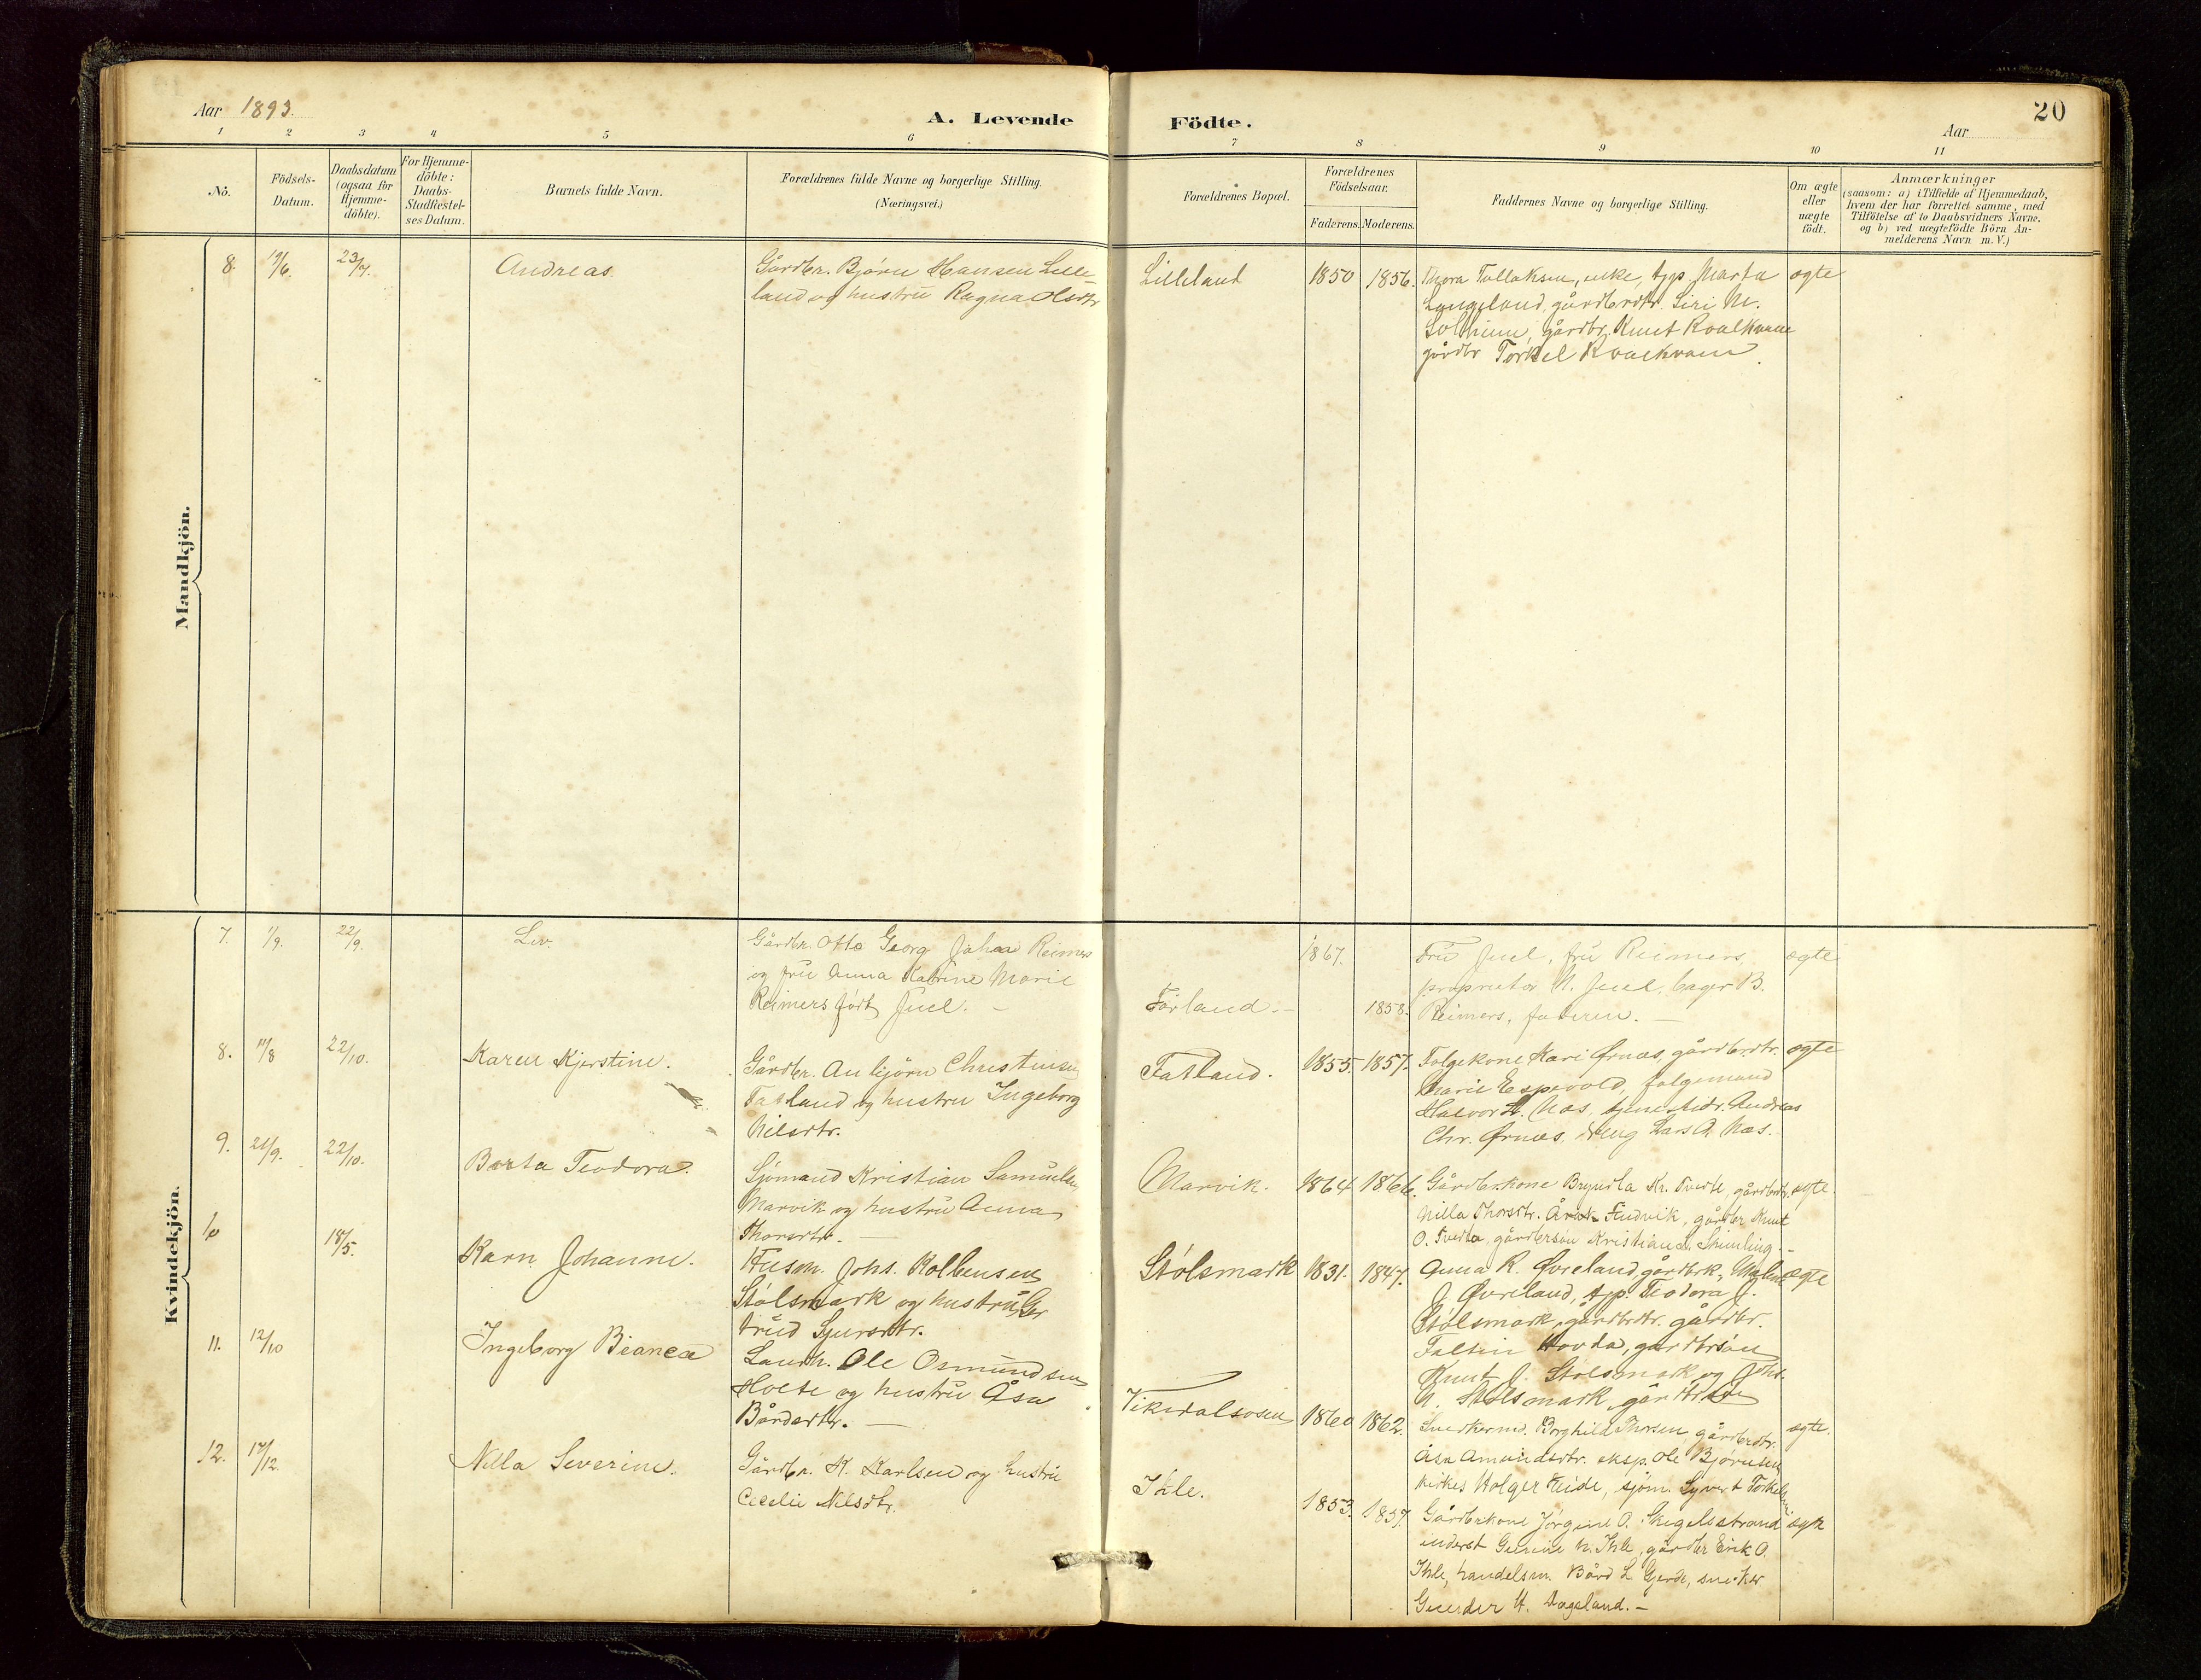 Aar 1893.
A. Levende Födte.
20
Aar
1 2 3 4 5 6 7 8 9 10 11
No.
Födsels-
Datum.
Daabsdatum
(ogsaa for
Hjemme-
döbte).
For Hjemme-
döbte:
Daabs-
Stadfæstel-
ses Datum.
Barnets fulde Navn.
Forældrenes fulde Navne og borgerlige Stilling.
(Næringsvei.)
Forældrenes Bopæl.
Forældrenes
Födselsaar.
Faderens. Moderens.
Faddernes Navne og borgerlige Stilling.
Om ægte
eller
uægte
födt.
Anmærkninger
(saasom: a) i Tilfælde af Hjemmedaab,
hvem der har forrettet samme, med
Tilföielse af to Daabsvidners Navne.
og b) ved uægtefödte Börn An-
melderens Navn m. V.)
Mandkjön.
8. 19/6. 23/7. Andreas.
Gårdbr. Bjørn Hansen Lille
land og hustru Ragna Olsdtr
Lilleland 1850 1856.
Thora Tollaksen, enke, tjp Marta
Langeland, gårdbrdtr. Siri M.
Solheim, gårdbr. Knut Kvalkvam
gårdbr Torkel Kvalkvam.
ægte
Kvindekjön.
7. 1/9. 22/9. Liv.
Gårdbr. Otto Georg Johan Reimers
og fru Anna Katrine Marie
Reimers født Juel. –
Førland. – 1867. 1858.
Fru Juel, fru Reimers,
proprietær N. Juel, bager B.
Reimers, faderen. –
ægte
8. 11/8 22/10. Karen Kjerstine.
Gårdbr. Anbjørn Christensen
Fatland og hustru Ingeborg
Nilsdtr.
Fatland. 1855. 1857.
Folgekone Kari Ørnæs, gårdbrdtr.
Marie Espevold, folgemand
Halvor A. Næs, Andreas
Chr. Ørnæs, dreng Lars A. Næs.
ægte
9. 21/9. 22/10. Berta Teodora.
Sjømand Kristian Samuelsen
Marvik og hustru Anna
Thorsdtr. –
Marvik. 1864 1866.
Gårdbrkone Brynila Kr. Tveite, gårdbrdtr.
Nilla Thorsdtr. Fudvik, gårdbr Knut
O. Tveita, gårdbrsøn Kristian L. –
ægte.
10 18/5. Karn Johanne.
Husm. Johs. Kolbensen
Stølsmark og hustru Ger
trud Sjursdtr.
Stølsmark 1831. 1847.
Anna R. Øvreland, gårdbrk, Malene
J. Øvreland, tjp. Teodora J.
Stølsmark, gårdbrdtr. gårdbr.
Faltin Hovda, gårdbrsøn
Knut J. Stølsmark og Johs.
N. Stølsmark, gårdbrsøn
ægte
11. 12/10 Ingeborg Bianca
Landh. Ole Osmundsen
Holte og hustru Åsa
Bårdsdtr. –
Vikedalsosen 1860 1862.
Borghild Thorsen, gårdbrdtr.
Åsa Amundsdtr. eksp. Ole Bjørnsen
Holger Eide, sjøm. Syvert Torkelsen
ægte.
12. 17/12. Nilla Severine.
Gårdbr. K. Karlsen og hustru
Cecelie Nilsdtr.
Ihle. 1853. 1857.
Gårdbrkone Jørgine O. Skegelsstrand
inderst Gunni N. Ihle, gårdbr Erik O.
Ihle, handelsm. Bård L Gjerde, snedker
H. Dageland. –
ægte